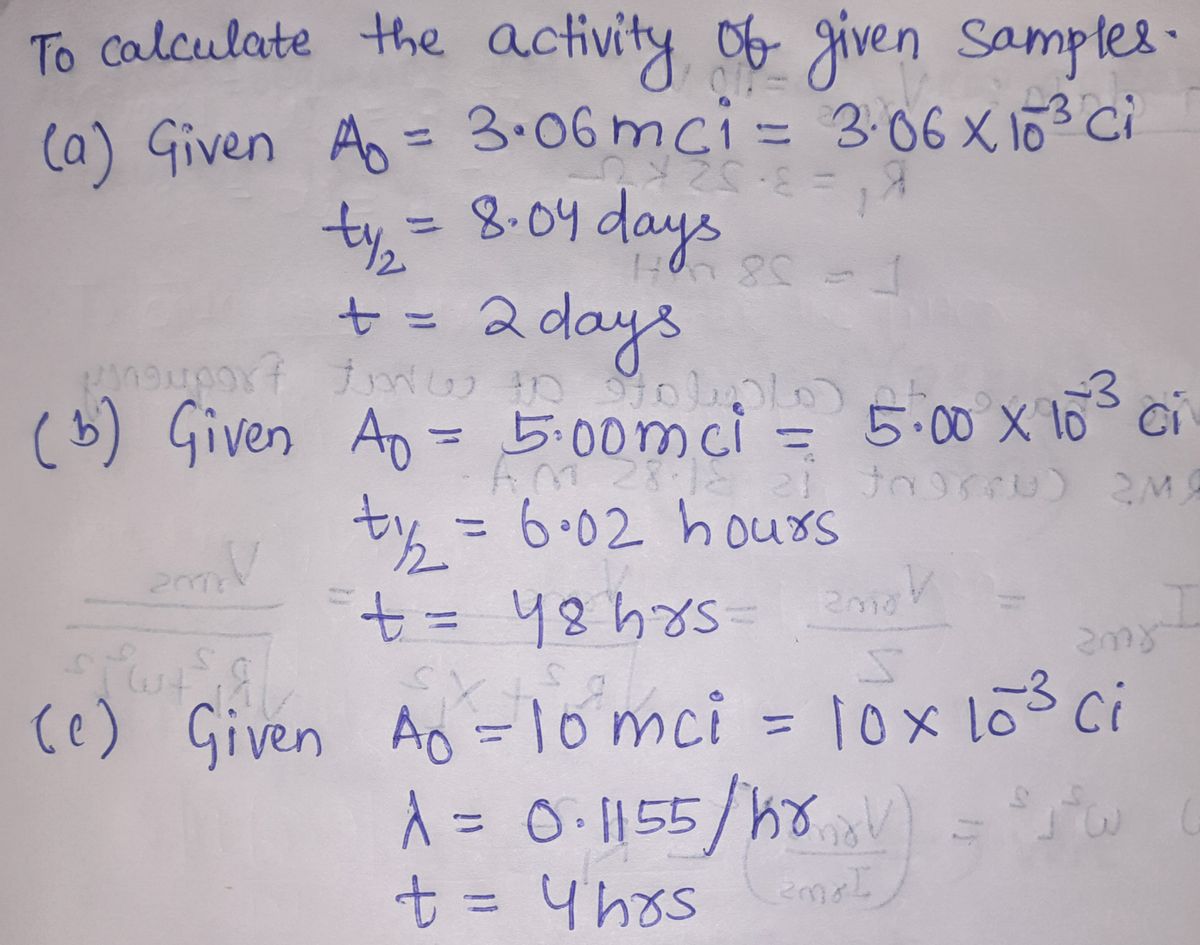 To calculate the activity of given samples.
(a) Given A₀ = 3.06 mci = 3.06 × 10⁻³ Ci
t₁/₂ = 8.04 days
t = 2 days
(b) Given A₀ = 5.00 mci = 5.00 × 10⁻³ Ci
t₁/₂ = 6.02 hours
t = 48 hrs
(c) Given A₀ = 10 mci = 10 × 10⁻³ Ci
λ = 0.1155/hr
t = 4 hrs